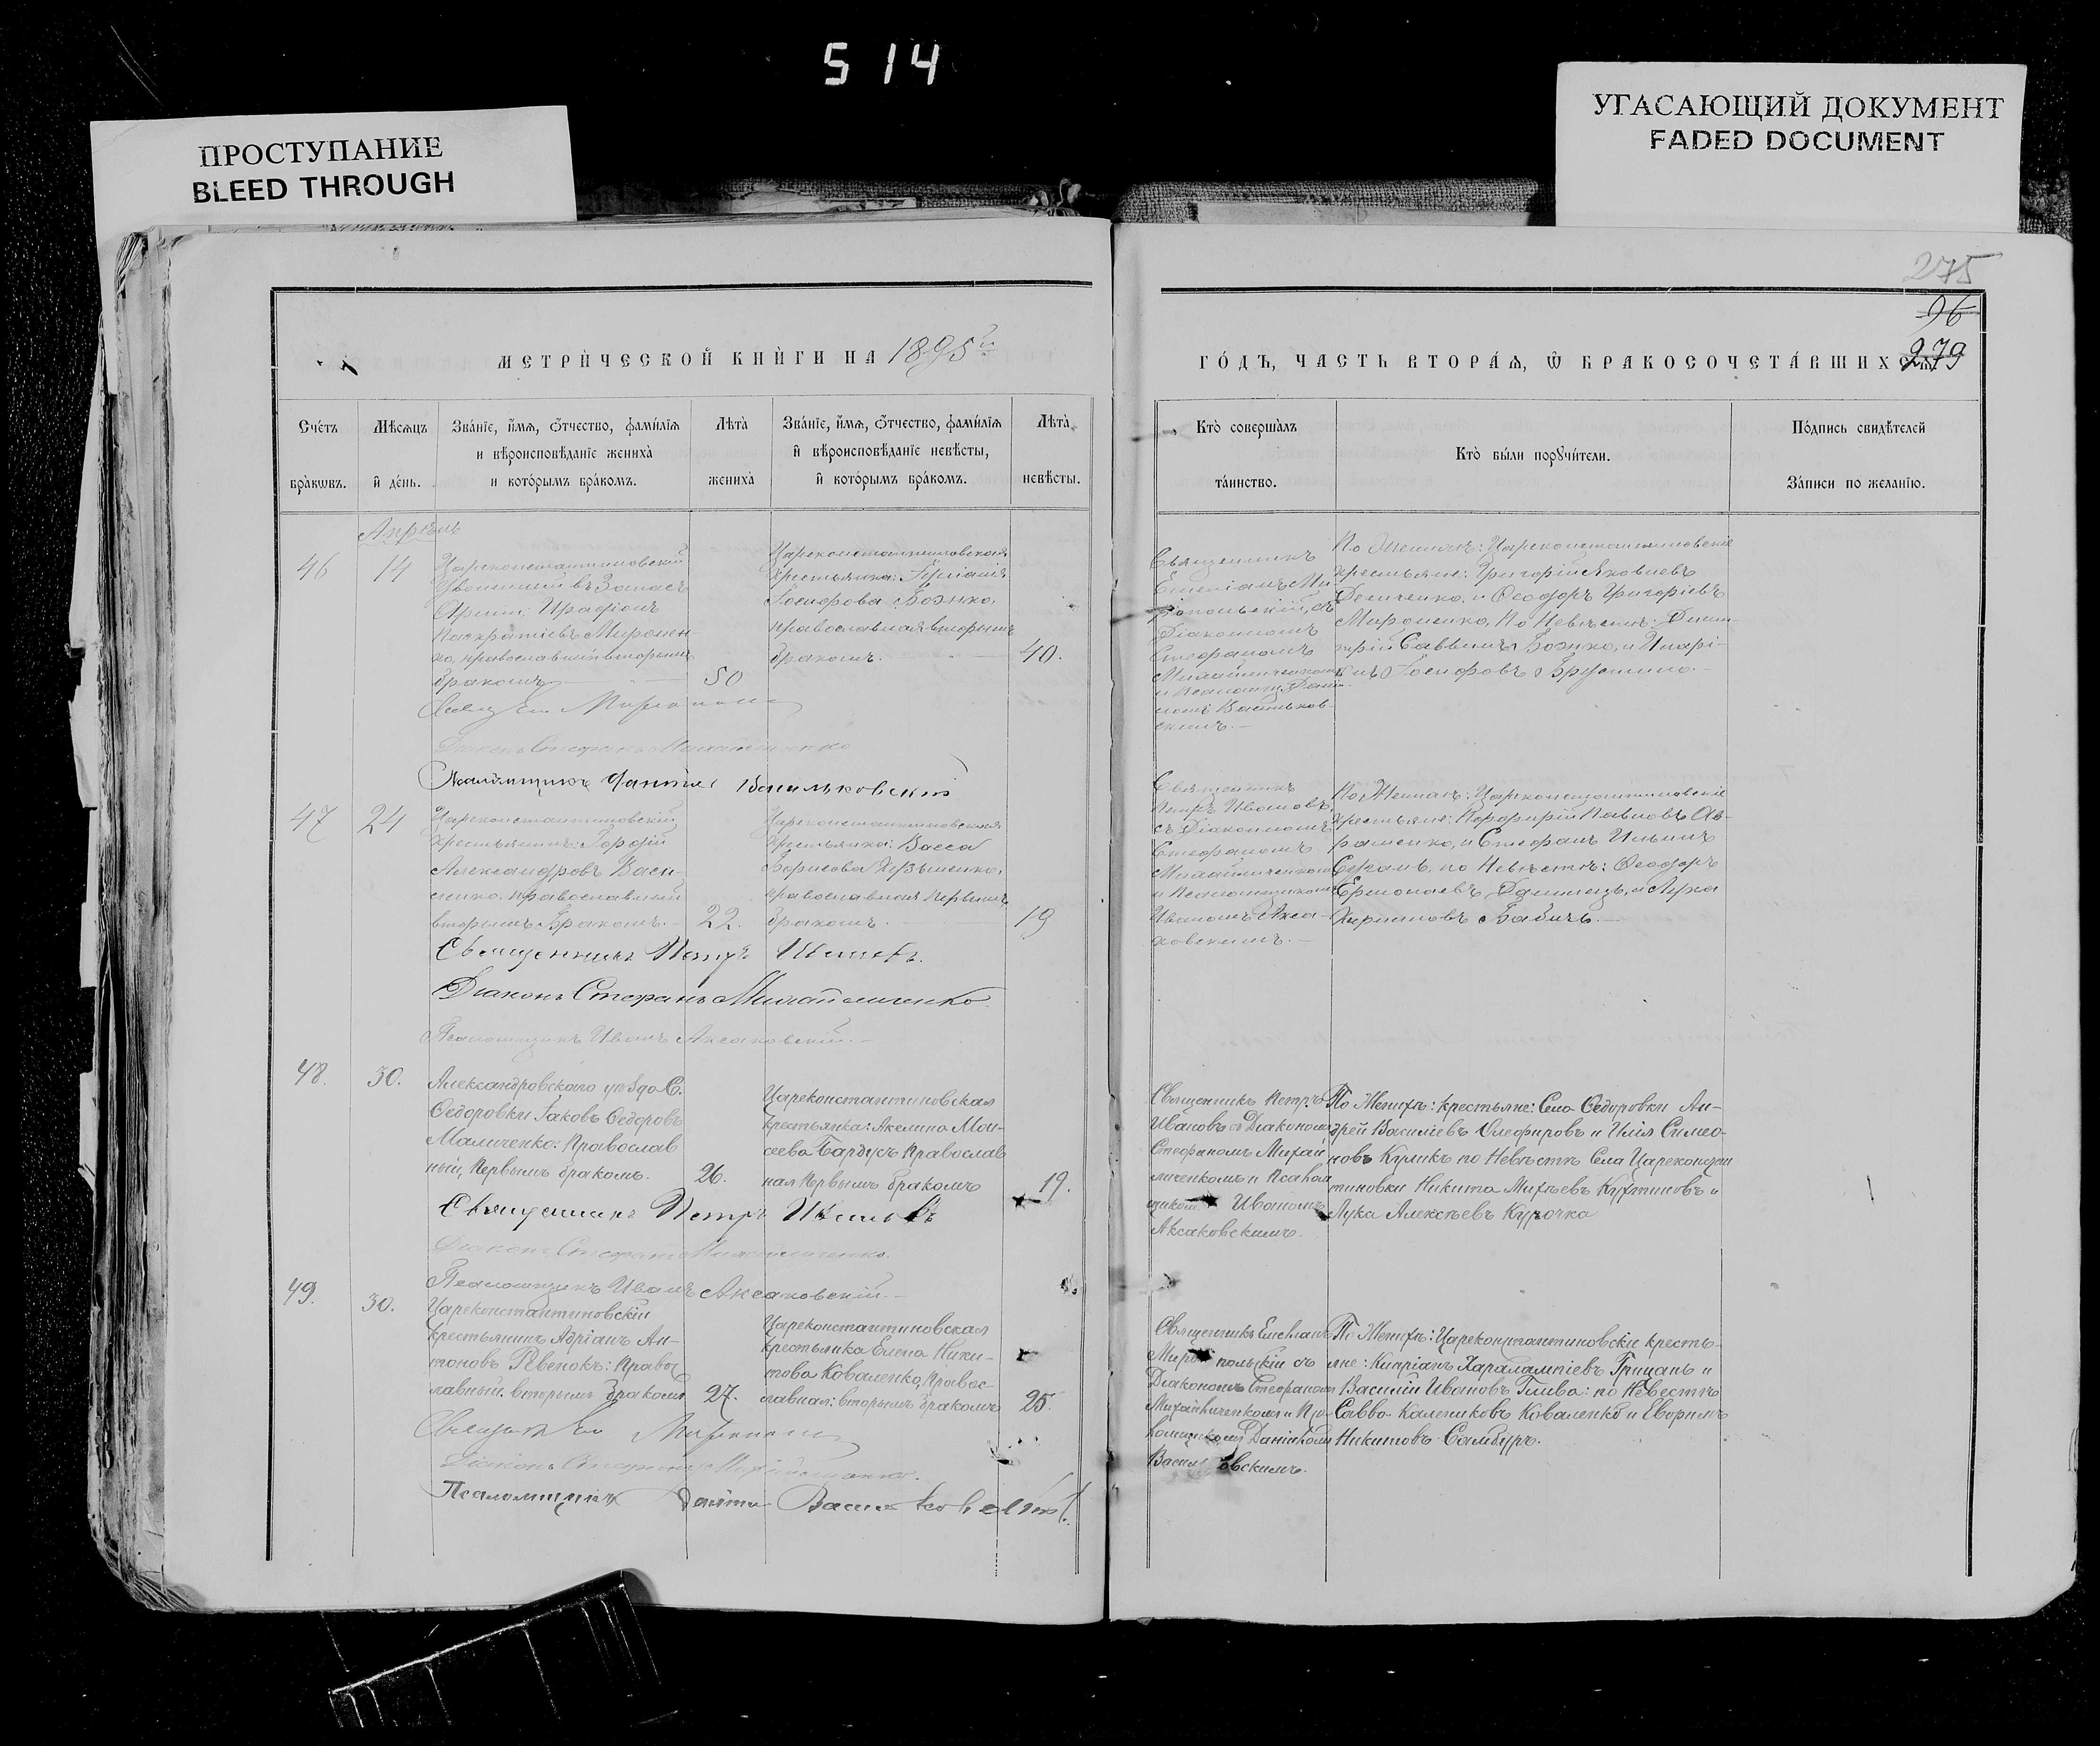 5 14
ПРОСТУПАНИЕ
BLEED THROUGH
УГАСАЮЩИЙ ДОКУМЕНТ
FADED DOCUMENT
275
96
279
МЕТРИ́ЧЕСКОЙ КНИ́ГИ НА 1895й
ГО́ДЪ, ЧАСТЬ ВТОРА́Ѧ, Ѿ БРАКОСОЧЕТА́ВШИХСѦ
Сче́тъ
бра́кѡвъ.
Мѣ́сѧцъ
и҆ де́нь.
Зва́нїе, и҆́мѧ, ѻ҆́тчество, фами́лїѧ
и вѣроисповѣ́данїе жениха̀
и кото́рымъ бра́комъ.
Лѣта̀
жениха̀
Зва́нїе, и҆́мѧ, ѻ҆́тчество, фами́лїѧ
и҆ вѣроисповѣ́данїе невѣ́сты,
и҆ кото́рымъ бра́комъ.
Лѣта̀
невѣ́сты.
Кто̀ соверша́лъ
та́инство.
Кто̀ бы́ли порꙋчи́тели.
По́дпись свидѣ́телей
За́писи по жела́нїю.
Апрѣль
46
14
Цареконстантиновскій
Уволенный въ Запасъ
Арміи:
Панкратіевъ Миронен
ко, православный вторымъ
бракомъ
50
Цареконстантиновская
крестьянка:
Іосифова Божко,
православная вторымъ
бракомъ.
40.
Священникъ
Діакономъ
Стефаномъ
Михайличенкомъ
Васильков
скимъ.
По Женихѣ: Цареконстантиновскіе
крестьяне: Григорій Яковлевъ
Демченко, и Ѳеодоръ Григоріевъ
Мироненко, По Невѣстѣ: Дими-
трій Саввинъ Божко, и Илarі-
онъ Іосифовъ
Діаконъ Стефанъ Михайличенко
Псаломщикъ Даніилъ Васильковскій
47
24
Цареконстантиновскій
крестьянинъ: Гордій
Александровъ Васи-
ленко, православный
вторымъ Бракомъ.
22.
Цареконстантиновская
крестьянка: Васса
Борисова
православная первымъ
бракомъ.
19
Священникъ
Петръ Ивановъ,
съ Діакономъ
Стефаномъ
Михайличенкомъ
и Псаломщикомъ
Иваномъ Акса-
ковскимъ.
По Женихѣ: Цареконстантиновскіе
крестьяне: Порфирій Павловъ Ав-
раменко, и Стефанъ Ильинъ
по Невѣстѣ: Ѳеодоръ
Ермолаевъ и Лука
Бабичъ.
Священникъ Петръ Ивановъ.
Діаконъ Стефанъ Михайличенко
Псаломщикъ Иванъ Аксаковскій.
48.
30.
Александровскаго уѣзда С.
Ѳедоровки Іаковъ Ѳедоровъ
Маличенко: Православ
ный, Первымъ бракомъ.
26.
Цареконстантиновская
крестьянка: Акелина Мои-
сеева Бардусъ Православ
ная Первымъ бракомъ
19.
Священникъ Петръ
Ивановъ съ Діакономъ
Стефаномъ Михай
личенкомъ и Псалом
щикомъ Иваномъ
Аксаковскимъ.
По Женихѣ: крестьяне: Села Ѳедоровки Ан-
дрей Василіевъ Олефировъ и Илія Симео-
новъ Куликъ по Невѣстѣ Села Цареконстан
тиновки Никита Михѣевъ Кухтиновъ и
Лука Алексѣевъ Курочка
Священникъ Петръ Ивановъ
Діаконъ Стефанъ Михайличенко.
Псаломщикъ Иванъ Аксаковскій.
49.
30.
Цареконстантиновскій
крестьянинъ Адріанъ Ан-
тоновъ Ревенокъ: Правос
лавный: вторымъ бракомъ
27.
Цареконстантиновская
крестьянка Елена Ники-
това Коваленко, Правос-
лавная: вторымъ бракомъ
25.
Священникъ
польскій съ
Діакономъ Стефаномъ
Михайличенкомъ и Пса-
ломщикомъ Даніиломъ
Васильковскимъ.
По Женихѣ: Цареконстантиновскіе кресть-
яне: Кипріанъ Харалампіевъ Грицанъ и
Василій Ивановъ Глива: по Невестѣ
Савва Калениковъ Коваленко и Евфимъ
Никитовъ Самбуръ.
Діаконъ Стефанъ Михайличенко.
Псаломщикъ Даніилъ Васильковскій.